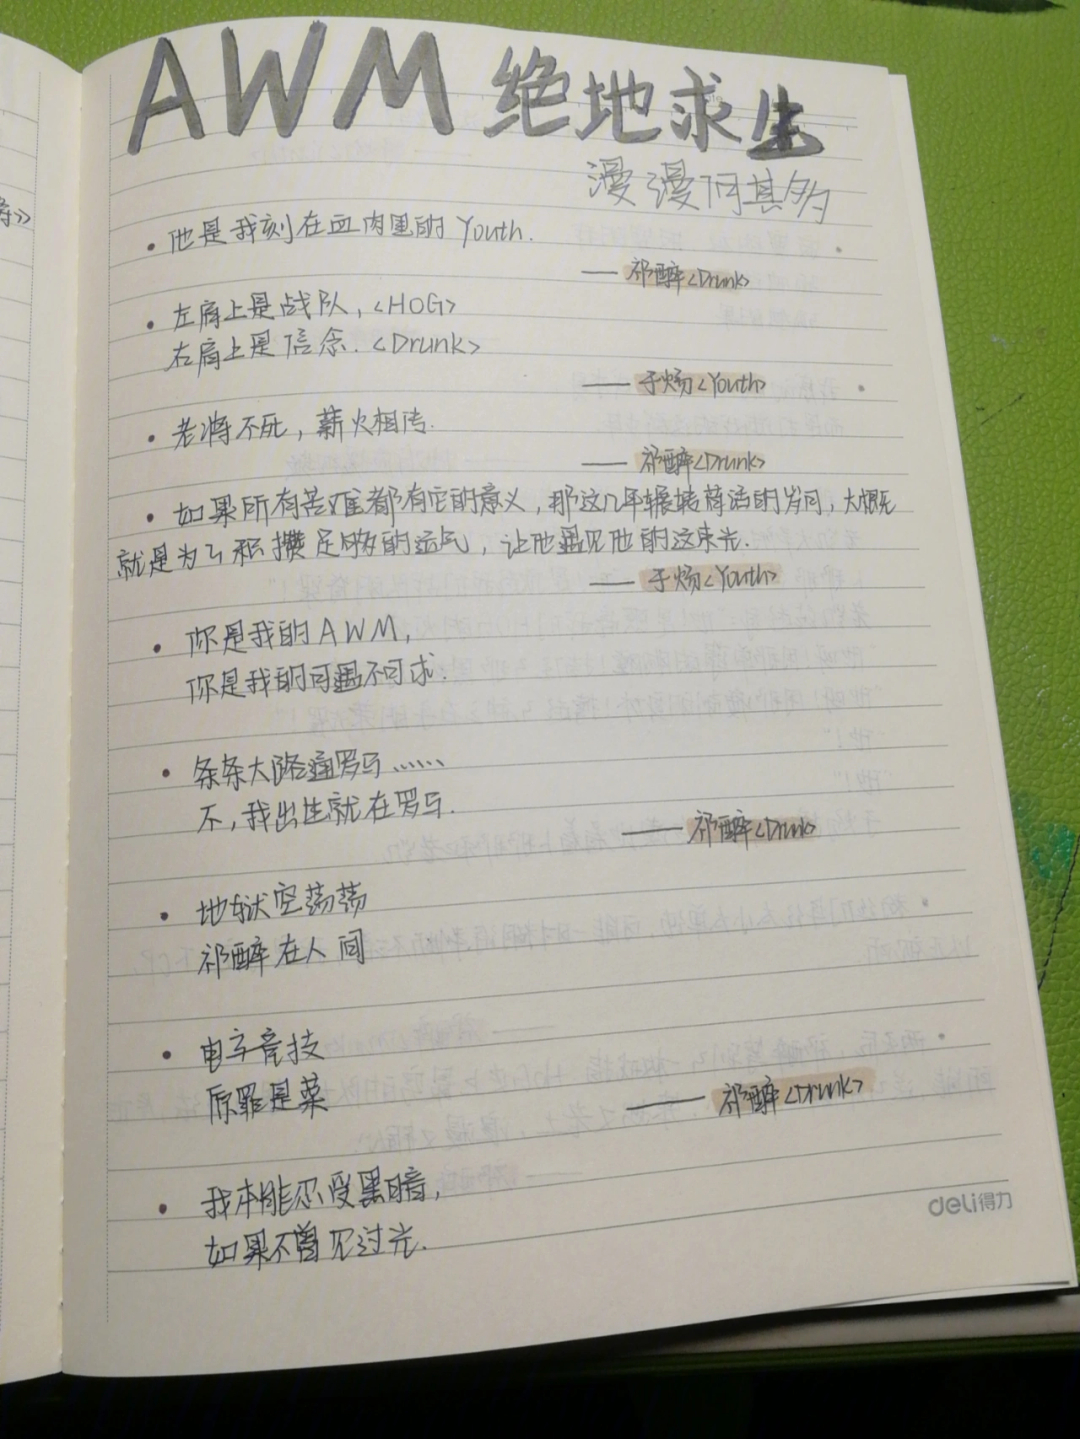 AWM 绝地求生
漫漫何其多
• 他是我刻在血肉里的 Youth.
—— 祁醉<Drunk>
• 左肩上是战队,<HOG>
右肩上是信念.<Drunk>
—— 于炀<Youth>
• 老将不死，薪火相传.
—— 祁醉<Drunk>
• 如果所有苦难都有它的意义，那这几年辗转苟活的岁月，大概
就是为了积攒足够的运气，让他遇见他的这束光.
—— 于炀<Youth>
• 你是我的AWM,
你是我的可遇不可求.
• 条条大路通罗马……
不，我出生就在罗马.
—— 祁醉<Drunk>
• 地狱空荡荡
祁醉在人间
• 电子竞技
原罪是菜
—— 祁醉<Drunk>
• 我本能忍受黑暗,
如果不曾见过光.
deli得力